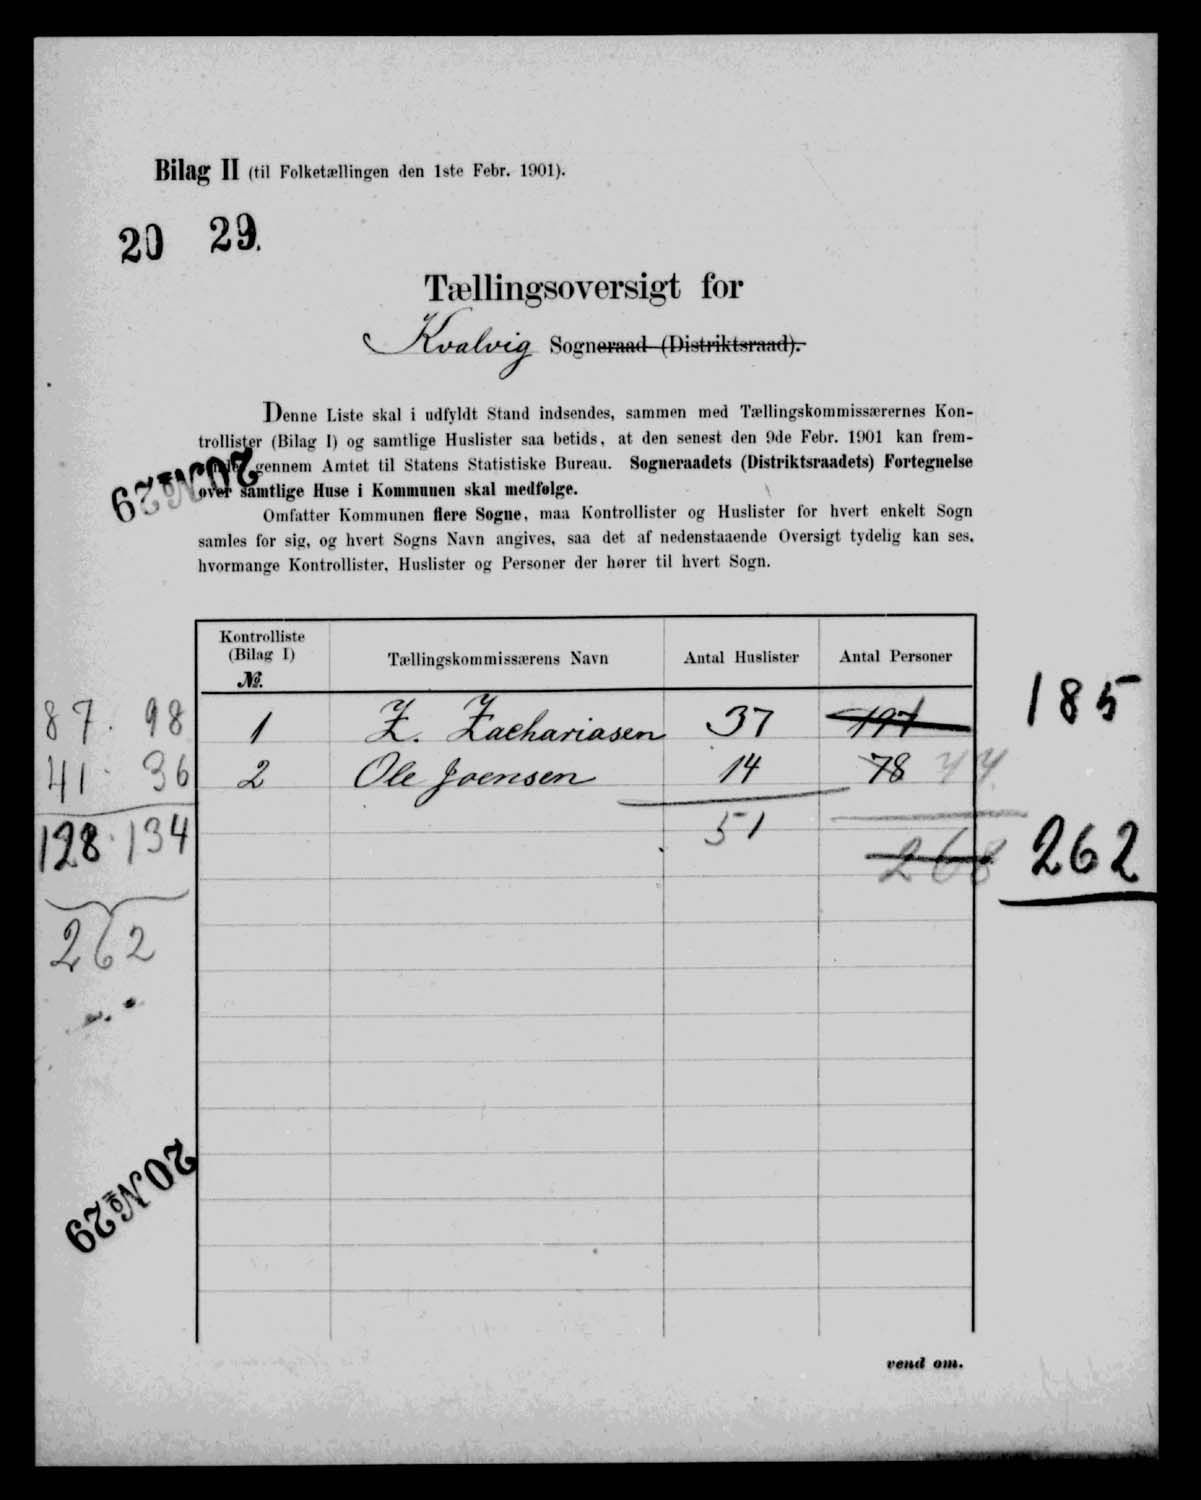 Bilag II (til Folketællingen den 1ste Febr. 1901).
20 29.
Tællingsoversigt for
Kvalvig Sogneraad (Distriktsraad).
Denne Liste skal i udfyldt Stand indsendes, sammen med Tællingskommissærernes Kon-
trollister (Bilag I) og samtlige Huslister saa betids, at den senest den 9de Febr. 1901 kan frem-
gennem Amtet til Statens Statistiske Bureau. Sogneraadets (Distriktsraadets) Fortegnelse
over samtlige Huse i Kommunen skal medfølge.
20 No 29
Omfatter Kommunen flere Sogne, maa Kontrollister og Huslister for hvert enkelt Sogn
samles for sig, og hvert Sogns Navn angives, saa det af nedenstaaende Oversigt tydelig kan ses,
hvormange Kontrollister, Huslister og Personer der hører til hvert Sogn.
Kontrolliste (Bilag I) No. Tællingskommissærens Navn Antal Huslister Antal Personer
87. 98 1 Z. Zachariasen 37 185
41. 36 2 Ole Joensen 14 78
128. 134 51 268 262
262
20 No 29
vend om.